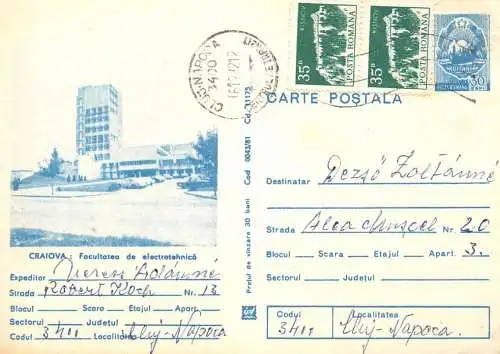 35B
RISNOV
POSTA ROMANA
35B
RISNOV
POSTA ROMANA
CLUJ-NAPOCA
3400
CARTE POSTALA
CRAIOVA: Facultatea de electrotehnică
Expeditor Veress Ádámné
Strada Robert Koch Nr. 13
Blocul Scara Etajul Apart.
Sectorul Județul
Codul 3400 Localitatea Cluj-Napoca
Prețul de vînzare 30 bani Cod 0043/81
Destinatar Dezső Zoltánné
Strada Alea Nr. 20
Blocul Scara Etajul Apart. 3.
Sectorul Județul
Codul Localitatea
3400 Cluj-Napoca.